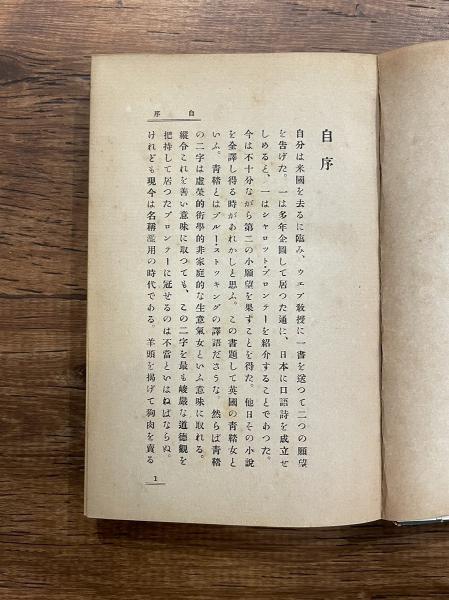 自序
自序
自分は米國を去るに臨み、ウエブ敎授に一書を送つて二つの願望
を吿げた。一は多年企圖して居つた通に、日本に口語詩を成立せ
しめると、一はシャロット・ブロンテーを紹介することであつた。
今は不十分ながら第二の小願望を果すことを得た。他日その小說
を全譯し得る時があれかしと思ふ。この書題して英國の靑鞜女と
いふ。靑鞜とはブルーストッキングの譯語ださうな。然らば靑鞜
の二字は虛榮的衒學的非家庭的な生意氣女といふ意味に取れる。
縱令これを善い意味に取つても、この二字を最も峻嚴な道德觀を
把持して居つたブロンテーに冠せるのは不當といはねばならぬ。
けれども現今は名稱濫用の時代である。羊頭を揭げて狗肉を賣る
1